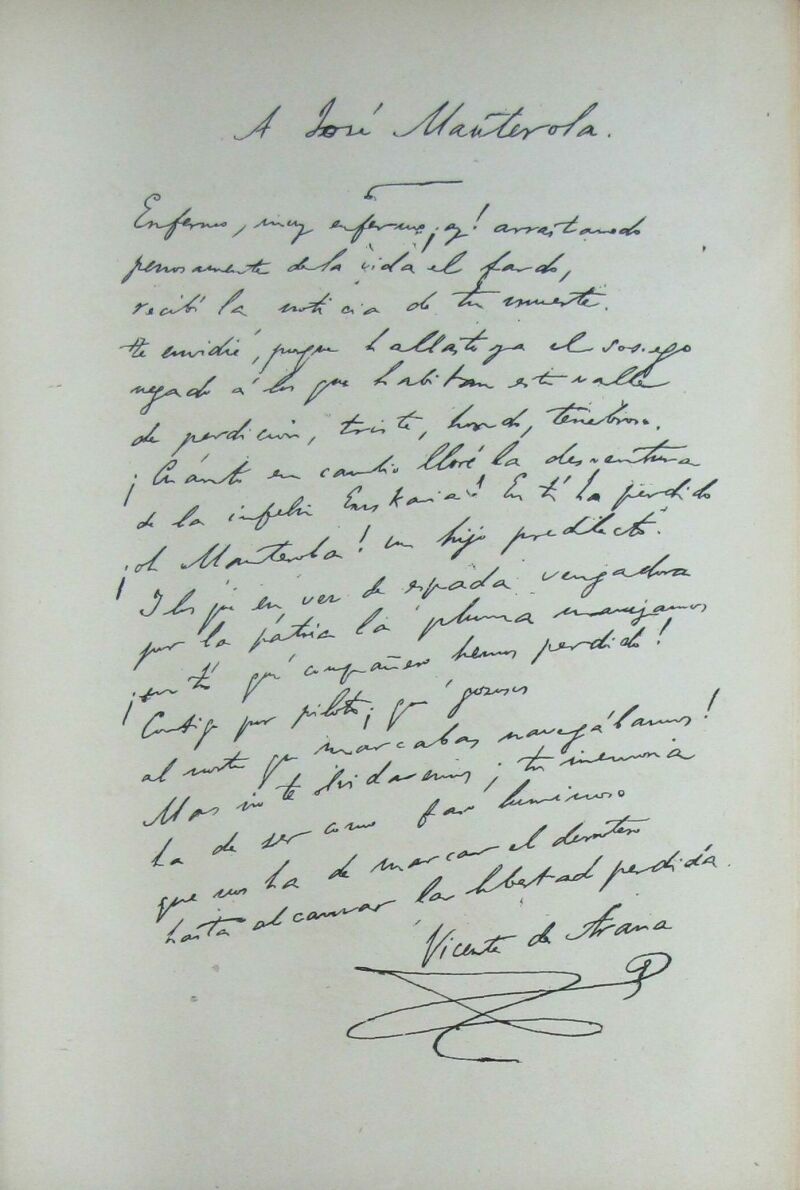 A José Manterola.
Enfermo, muy enfermo, ¡ay! arrastrando
penosamente de la vida el fardo,
recibí la noticia de tu muerte.
Te envidié, porque hallaste ya el sosiego
negado á los que habitan este valle
de perdición, triste, hondo, tenebroso.
¡Cuánto en cambio lloré la desventura
de la infeliz Euskaria! En tí ha perdido
¡oh Manterola! un hijo predilecto.
Y los que en vez de espada vengadora
por la pátria la pluma manejamos
¡en tí qué compañero hemos perdido!
Contigo por piloto, ¡qué gozosos
al norte que marcabas navegábamos!
Mas no te olvidaremos; tu memoria
ha de ser como faro luminoso
que nos ha de marcar el derrotero
hasta alcanzar la libertad perdida.
Vicente de Arana